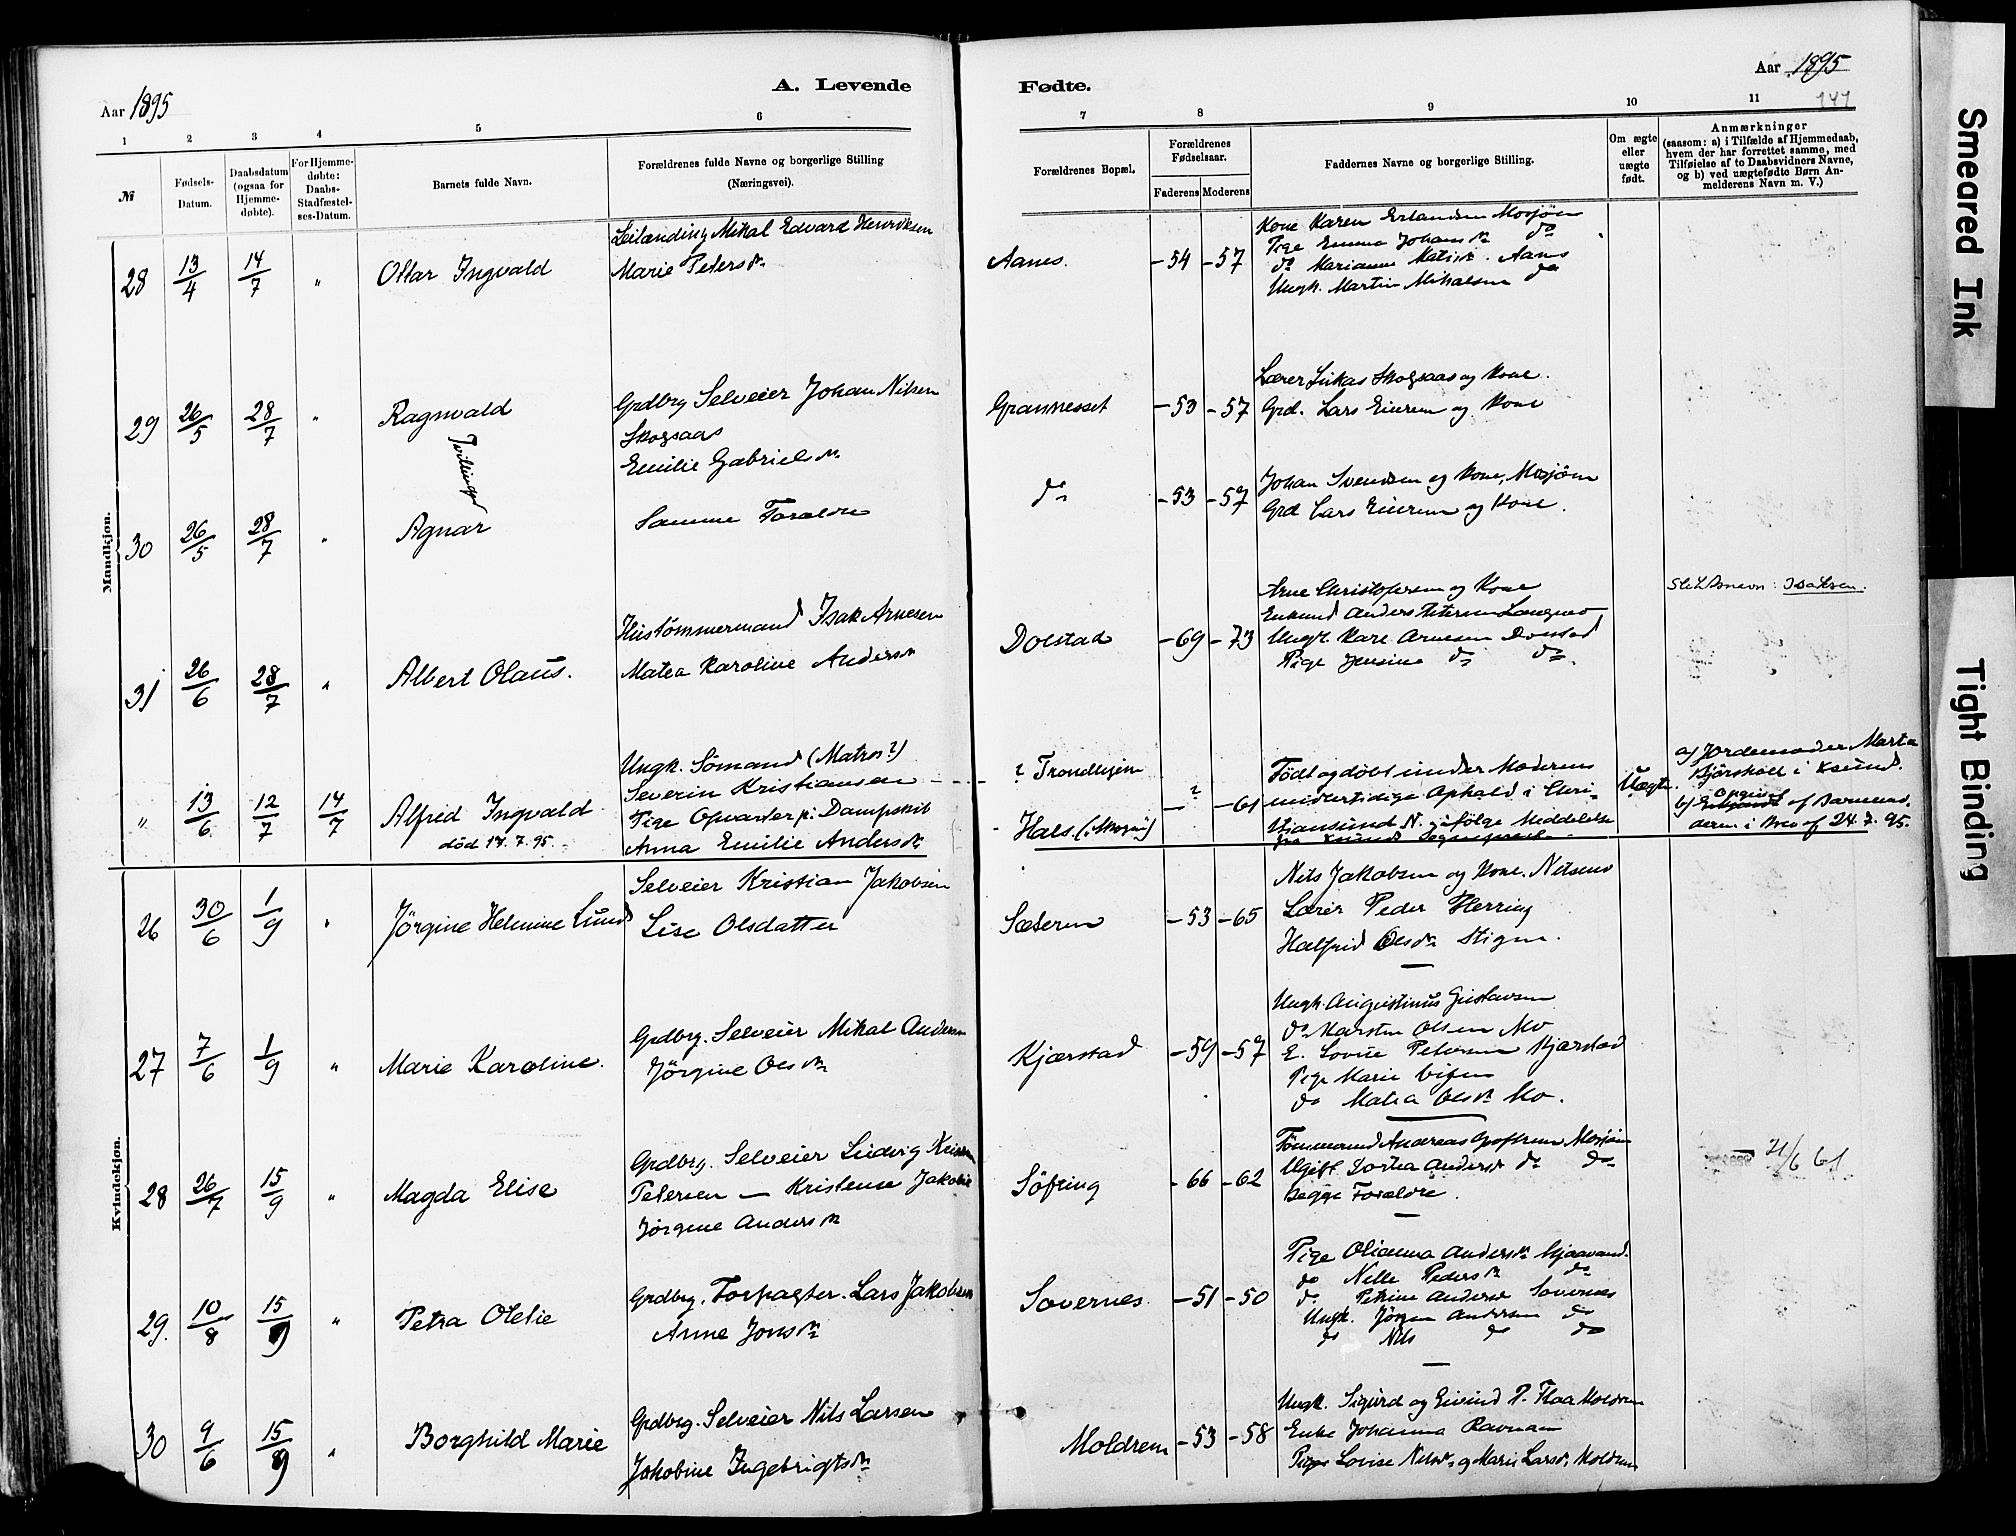 Aar 1895
A. Levende
Fødte.
Aar 1895
141
1 2 3 4 5 6 7 8 9 10 11
№
Fødsels-
Datum.
Daabsdatum
(ogsaa for
Hjemme-
døbte).
For Hjemme-
døbte:
Daabs-
Stadfæstel-
ses-Datum.
Barnets fulde Navn.
Forældrenes fulde Navne og borgerlige Stilling
(Næringsvei).
Forældrenes Bopæl.
Forældrenes
Fødselsaar.
Faderens Moderens
Faddernes Navne og borgerlige Stilling.
Om ægte
eller
uægte
født.
Anmærkninger
(saasom: a) i Tilfælde af Hjemmedaab,
hvem der har forrettet samme, med
Tilføielse af to Daabsvidners Navne,
og b) ved uægtefødte Børn An-
melderens Navn m. V.)
Mandkjøn.
28 13/4 14/7 " Ottar Ingvald
Leilænding Mikal Edvard Henriksen
Marie Petersdr
Aanes. -54 -57
Kone Karen Erlandsen Mosjøen
Pige Emma Johansdr do
do Marianne Matisdr. Aanes
Ungk. Martin Mikalsen do
29 26/5 28/7 " Ragnvald
Tvillinger
Grdbrg Selveier Johan Nilsen
Skogsaas
Emilie Gabrielsdr
Grannesset -53 -57
Lærer Lukas Skogsaas og Kone.
Grd. Lars Eiierem og Kone
30 26/5 28/7 " Agnar
Samme Forældre
do -53 -57
Johan Svendsen og Kone, Mosjøen
Grd Lars Eiierem og Kone.
31 26/6 28/7 " Albert Olaus.
Hustømmermand Isak Arnesen
Matea Karoline Andersdr
Dolstad -69 -73
Arne Christofersen og Kone
Enkemd Anders Petersen
Ungk. Karl Arnesen Dolstad
Pige Jensine do do.
Slektsnavn: Isaksen.
" 13/6 12/7 14/7 Alfred Ingvald
død 14.7.95.
Ungk. Sømand (Matros?)
Severin Kristiansen
Pige Opvarter pr. Dampskib
Anna Emilie Andersdr
? Trondhjem
Hals. (Mosjø)
- ? -61
Født og døbt under Moderens
midlertidige Ophold i Chri-
stiansund N. ifølge Meddelelse
fra
Uægte
a) Jordemoder Marta
i Ksund.
b) Opgivet af Barnemo.
deren i Brev af 24.7.95.
Kvindekjøn.
26 30/6 1/9 " Jørgine Helmine Lund
Selveier Kristian Jakobsen
Lise Olsdatter
Sæteren -53 -65
Nils Jakobsen og Kone.
Lærer Peder Herring
Halfrid Olsdr Stigen.
27 7/6 1/9 " Marie Karoline.
Grdbrg. Selveier Mikal Andersen
Jørgine Olsdr
Kjærstad -59 -57
Ungk. Augustinus Gustavsen
do Karsten Olsen Mo
E. Lovise Petersen Kjærstad
Pige Marie
do Matea Olsdr Mo.
28 26/7 15/9 " Magda Elise
Grdbrg. Selveier Ludvig
Petersen — Kristense
Jørgine Andersdr
Søfting -66 -62
Tømmermd Andreas Mosjøen
Ugift Dortea Andersdr do do
Begge Forældre.
21/6 61
29. 10/8 15/9 " Petra Oletie
Grdbrg. Forpagter. Lars Jakobsen
Anne Jonsdr
Sovernes. -51 -50
Pige Olianna Andersdr
do Nelle Pedersdr do
do Petrine Andersdr Sovernes
Ungk. Jørgen Andersen do
do Nils do do
30 9/6 15/9 " Borghild Marie
Grdbrg. Selveier Nils Larsen
Jakobine Ingebrigtsdr
Moldrem -53 -58
Ungk. Sigurd og Eivind P. Flaa Moldrem
Enke Johanna Ravnaa
Pige Lovise Nilsdr og Marie Larsdr. Moldrem
Smeared Ink
Tight Binding